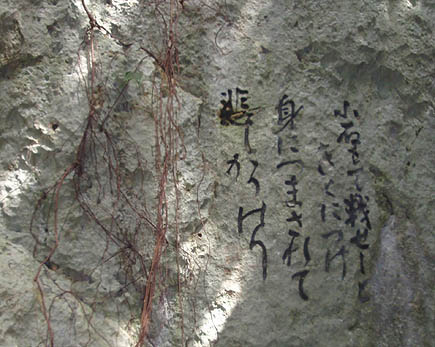 小石もて戦せしと
きくにつけ
身につまされて
悲しかりけり